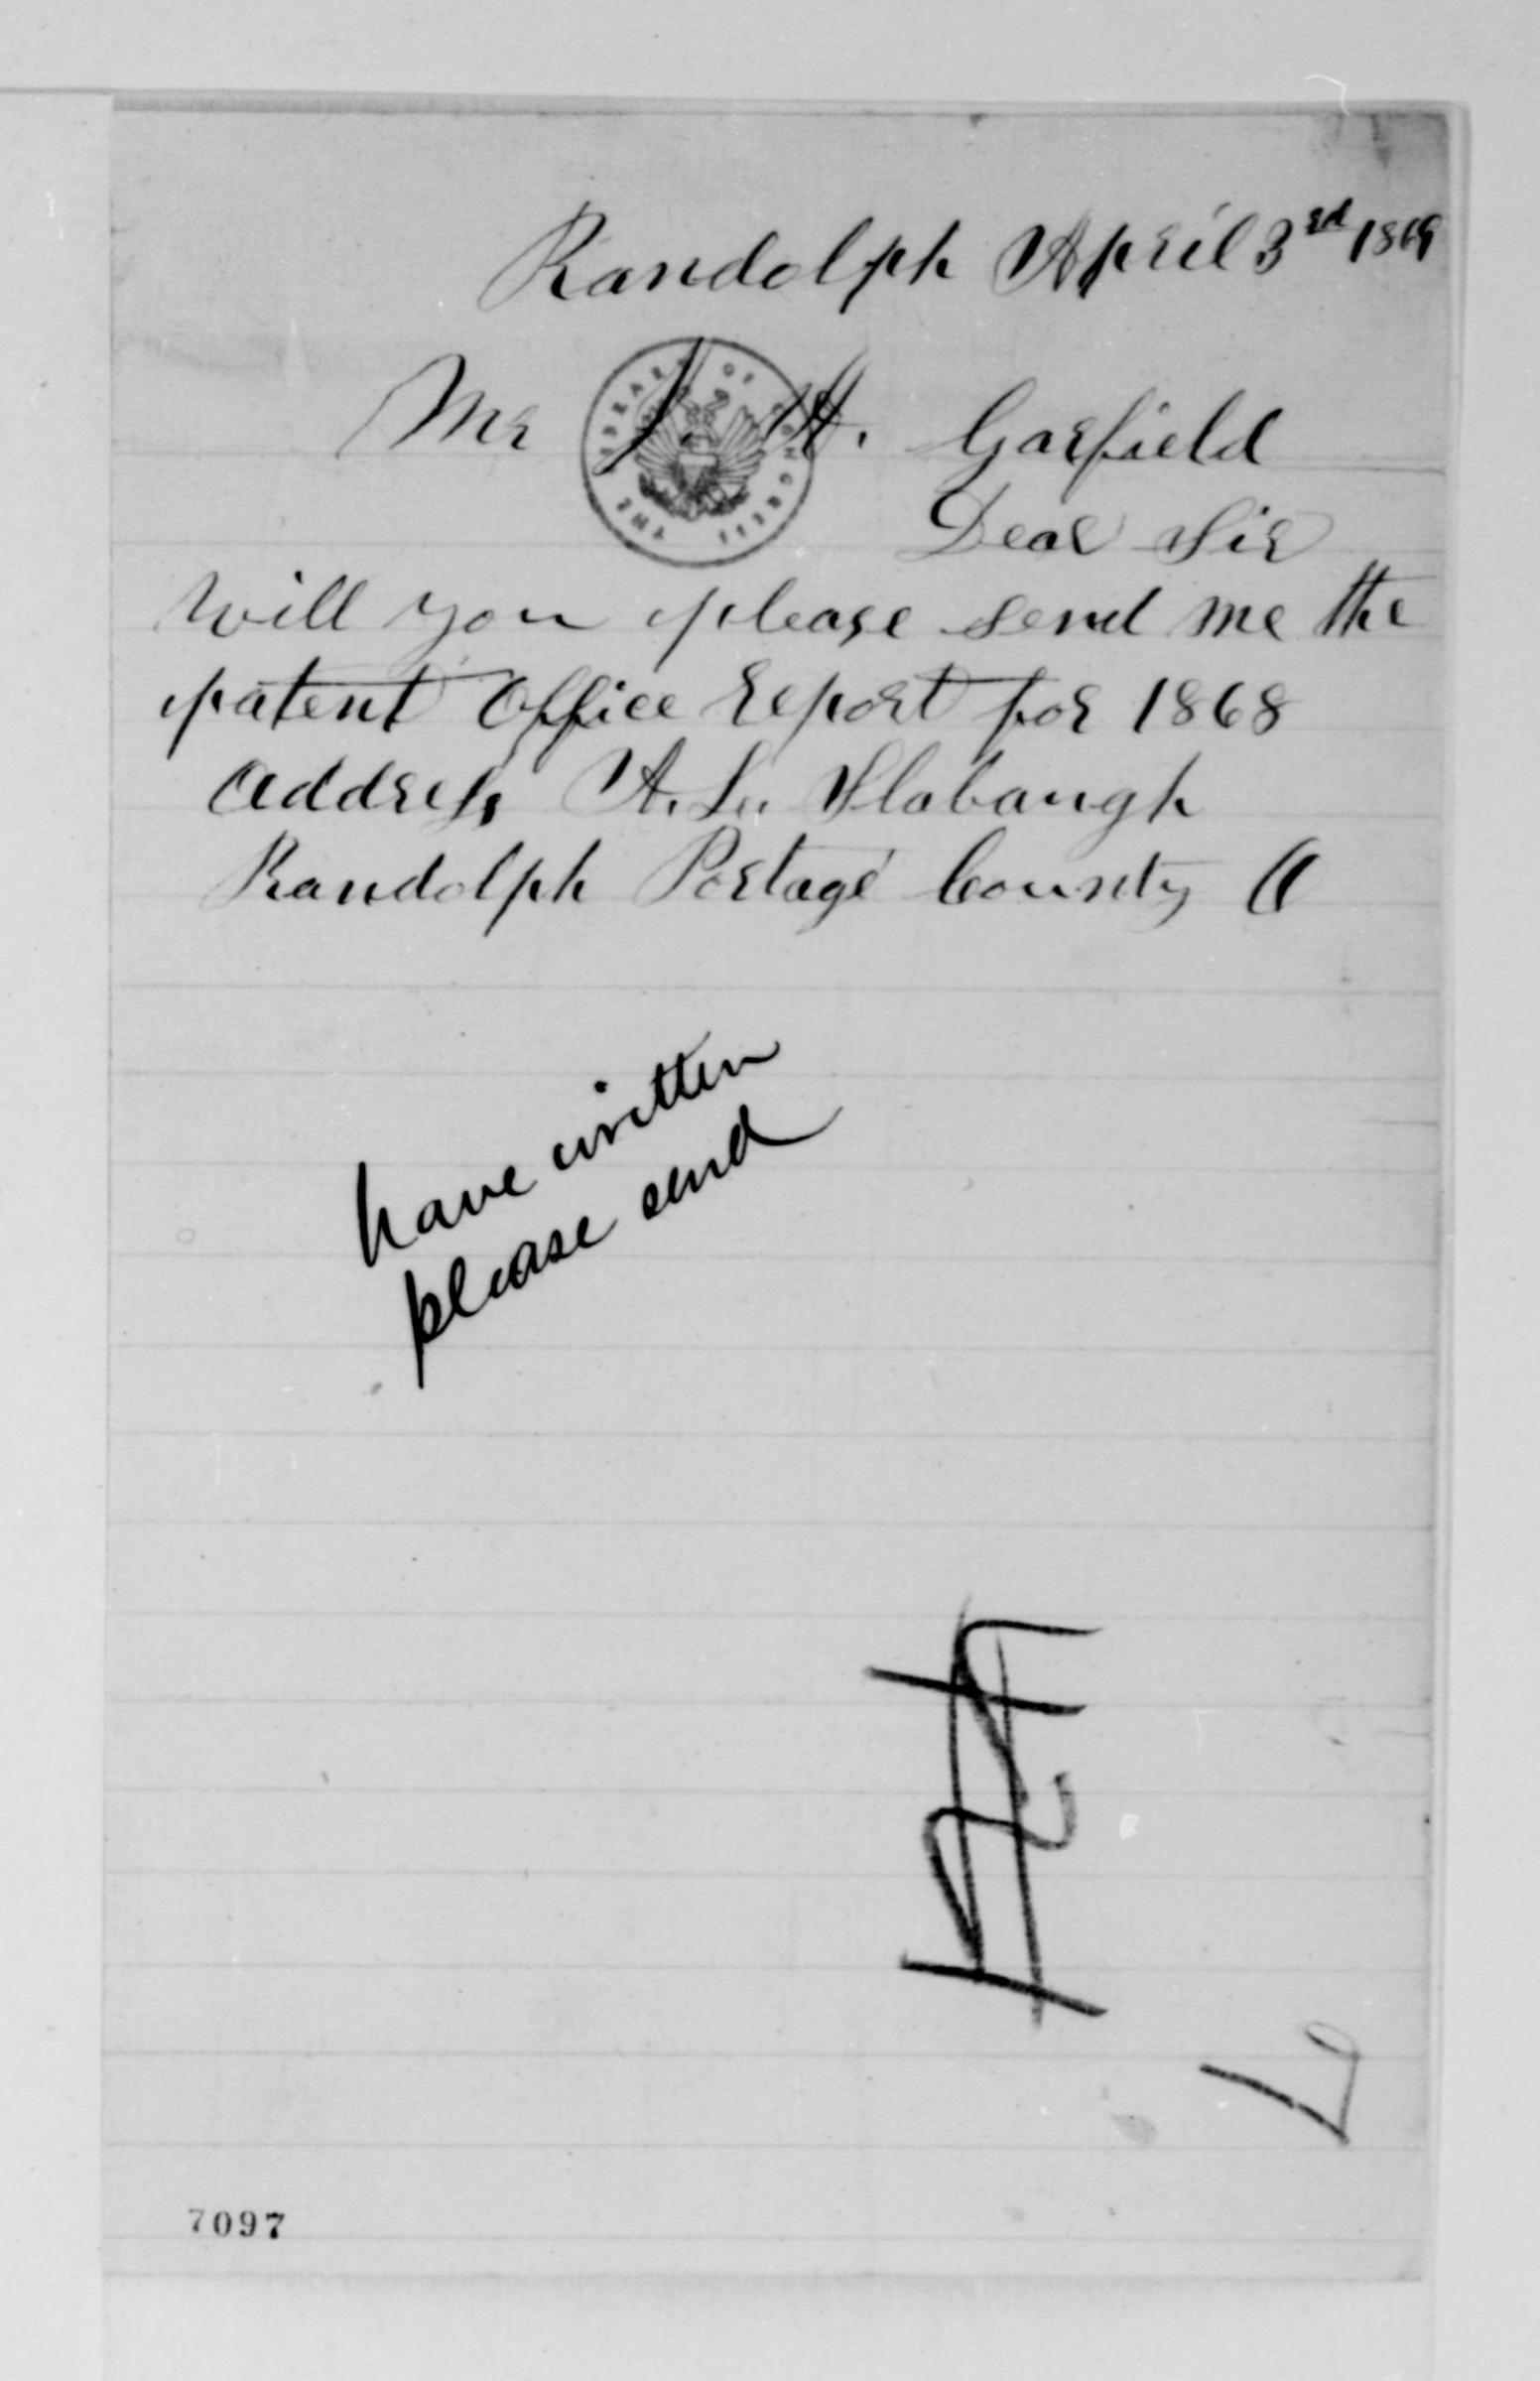 Randolph April 3rd 1869
Mr J. H. Garfield
THE LIBRARY OF CONGRESS
Dear Sir
Will you please send me the
patent Office Report for 1868
Address A. L. Slabaugh
Randolph Portage County O
have written
please send
7097